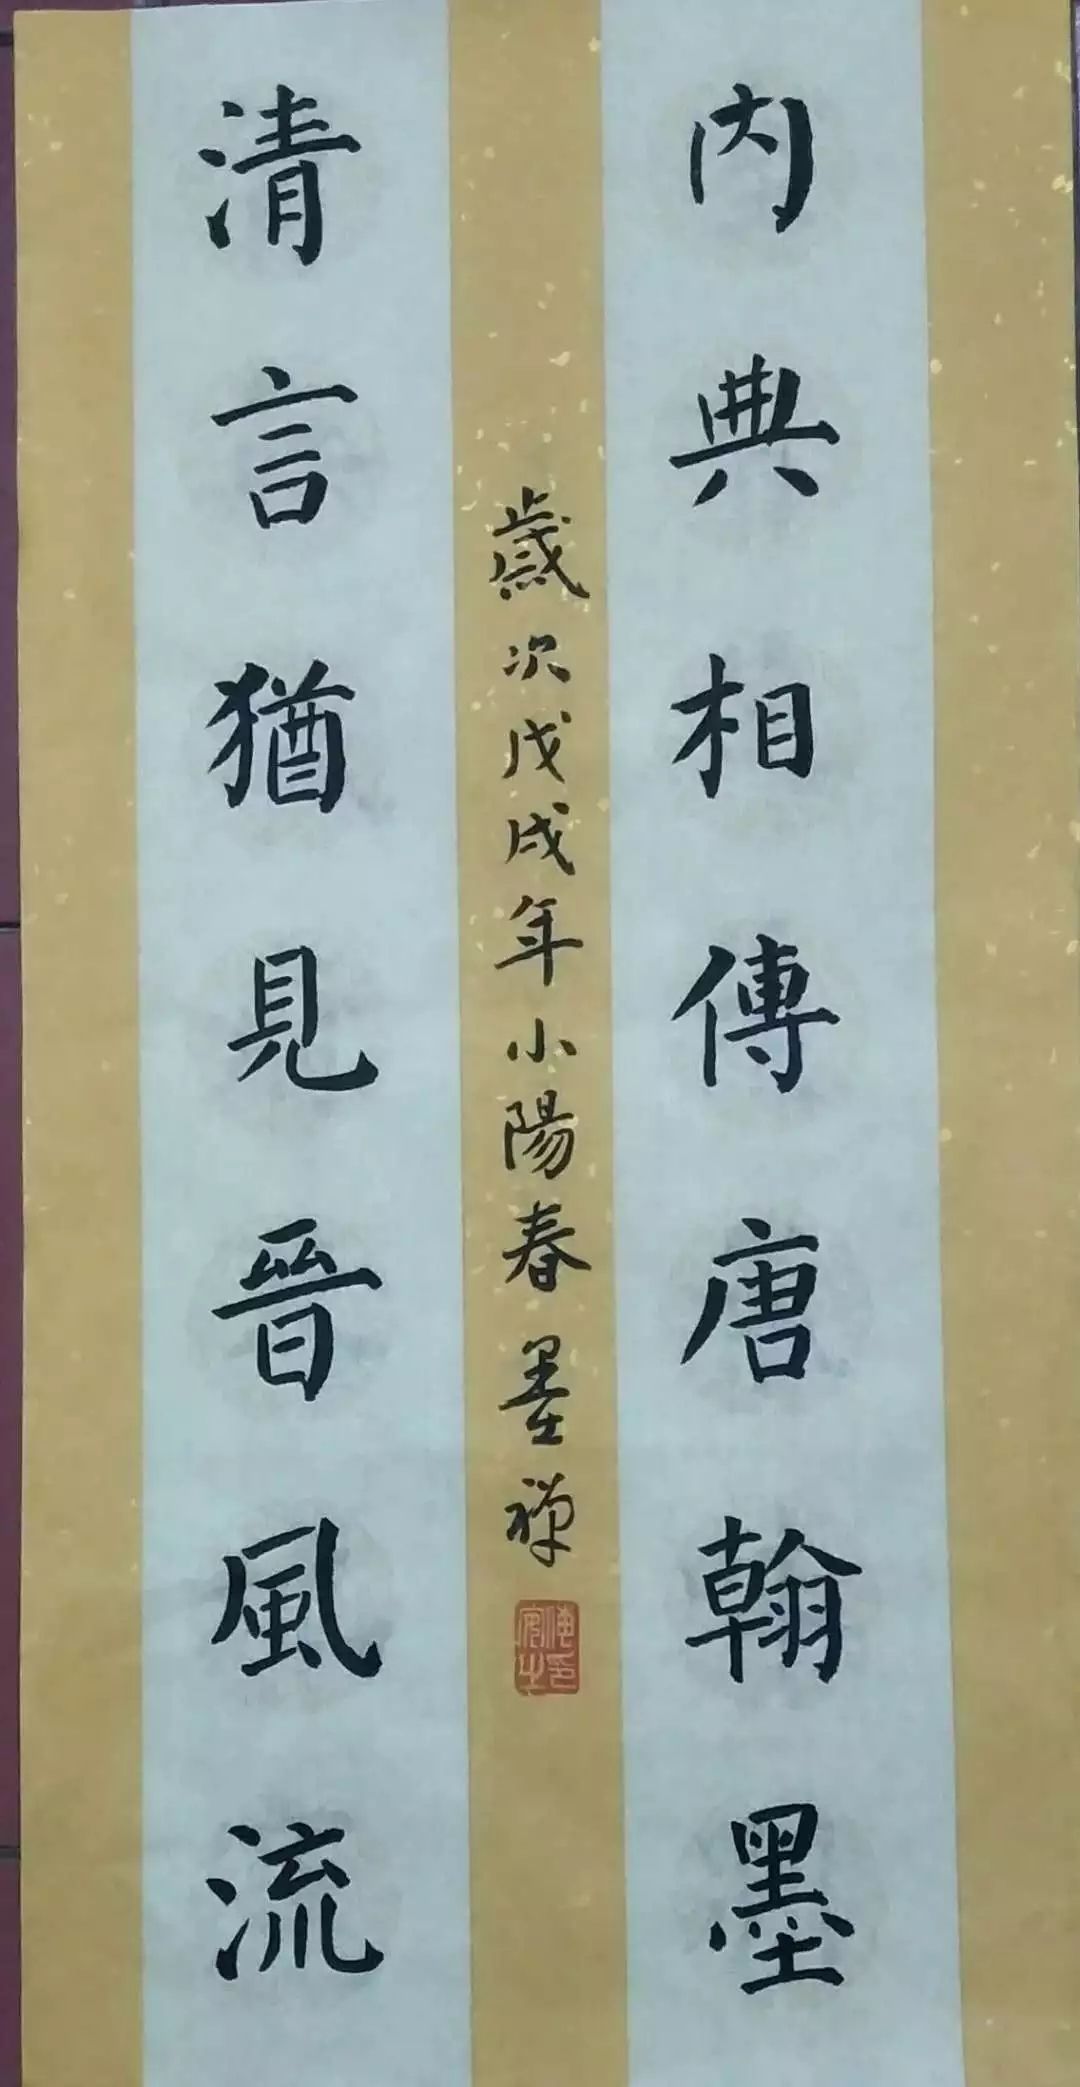 內典相傳唐翰墨
清言猶見晉風流
歲次戊戌年小陽春墨禅